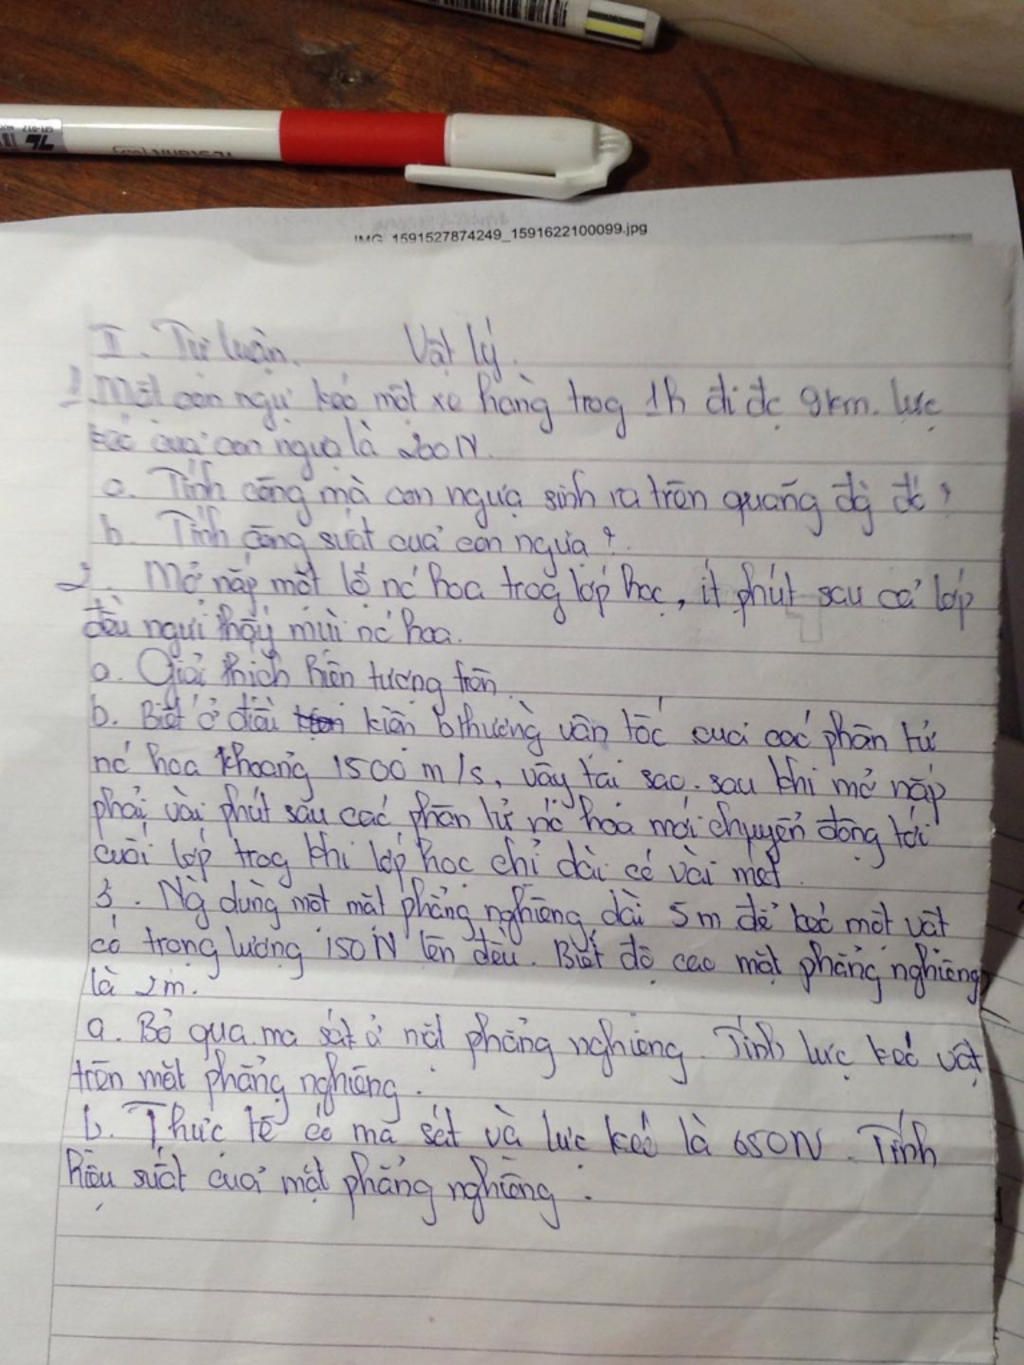 IMG_1591527874249_1591622100099.jpg
II. Tự luận. Vật lý.
1. Một con ngựa kéo một xe hàng trog 1h đi đc 9km. lực
kéo của con ngựa là 200N.
a. Tính công mà con ngựa sinh ra trên quãng đg đó ?
b. Tính công suất của con ngựa ?
2. Mở nắp một lọ nc' hoa trog lớp học, ít phút sau cả lớp
đều ngửi thấy mùi nc' hoa.
a. Giải thích hiện tượng trên.
b. Biết ở điều kiện bthường vận tốc của các phân tử
nc' hoa khoảng 1500 m/s, vậy tại sao. sau khi mở nắp
phải vài phút sau các phân tử nc' hoa mới chuyển động tới
cuối lớp trog khi lớp học chỉ dài có vài mét.
3. Ng dùng một mặt phẳng nghiêng dài 5m để kéo một vật
có trọng lượng 150N lên đều. Biết độ cao mặt phẳng nghiêng
là 2m.
a. Bỏ qua ma sát ở mặt phẳng nghiêng. Tính lực kéo vật
trên mặt phẳng nghiêng.
b. Thực tế có ma sát và lực kéo là 650N. Tính
hiệu suất của mặt phẳng nghiêng.